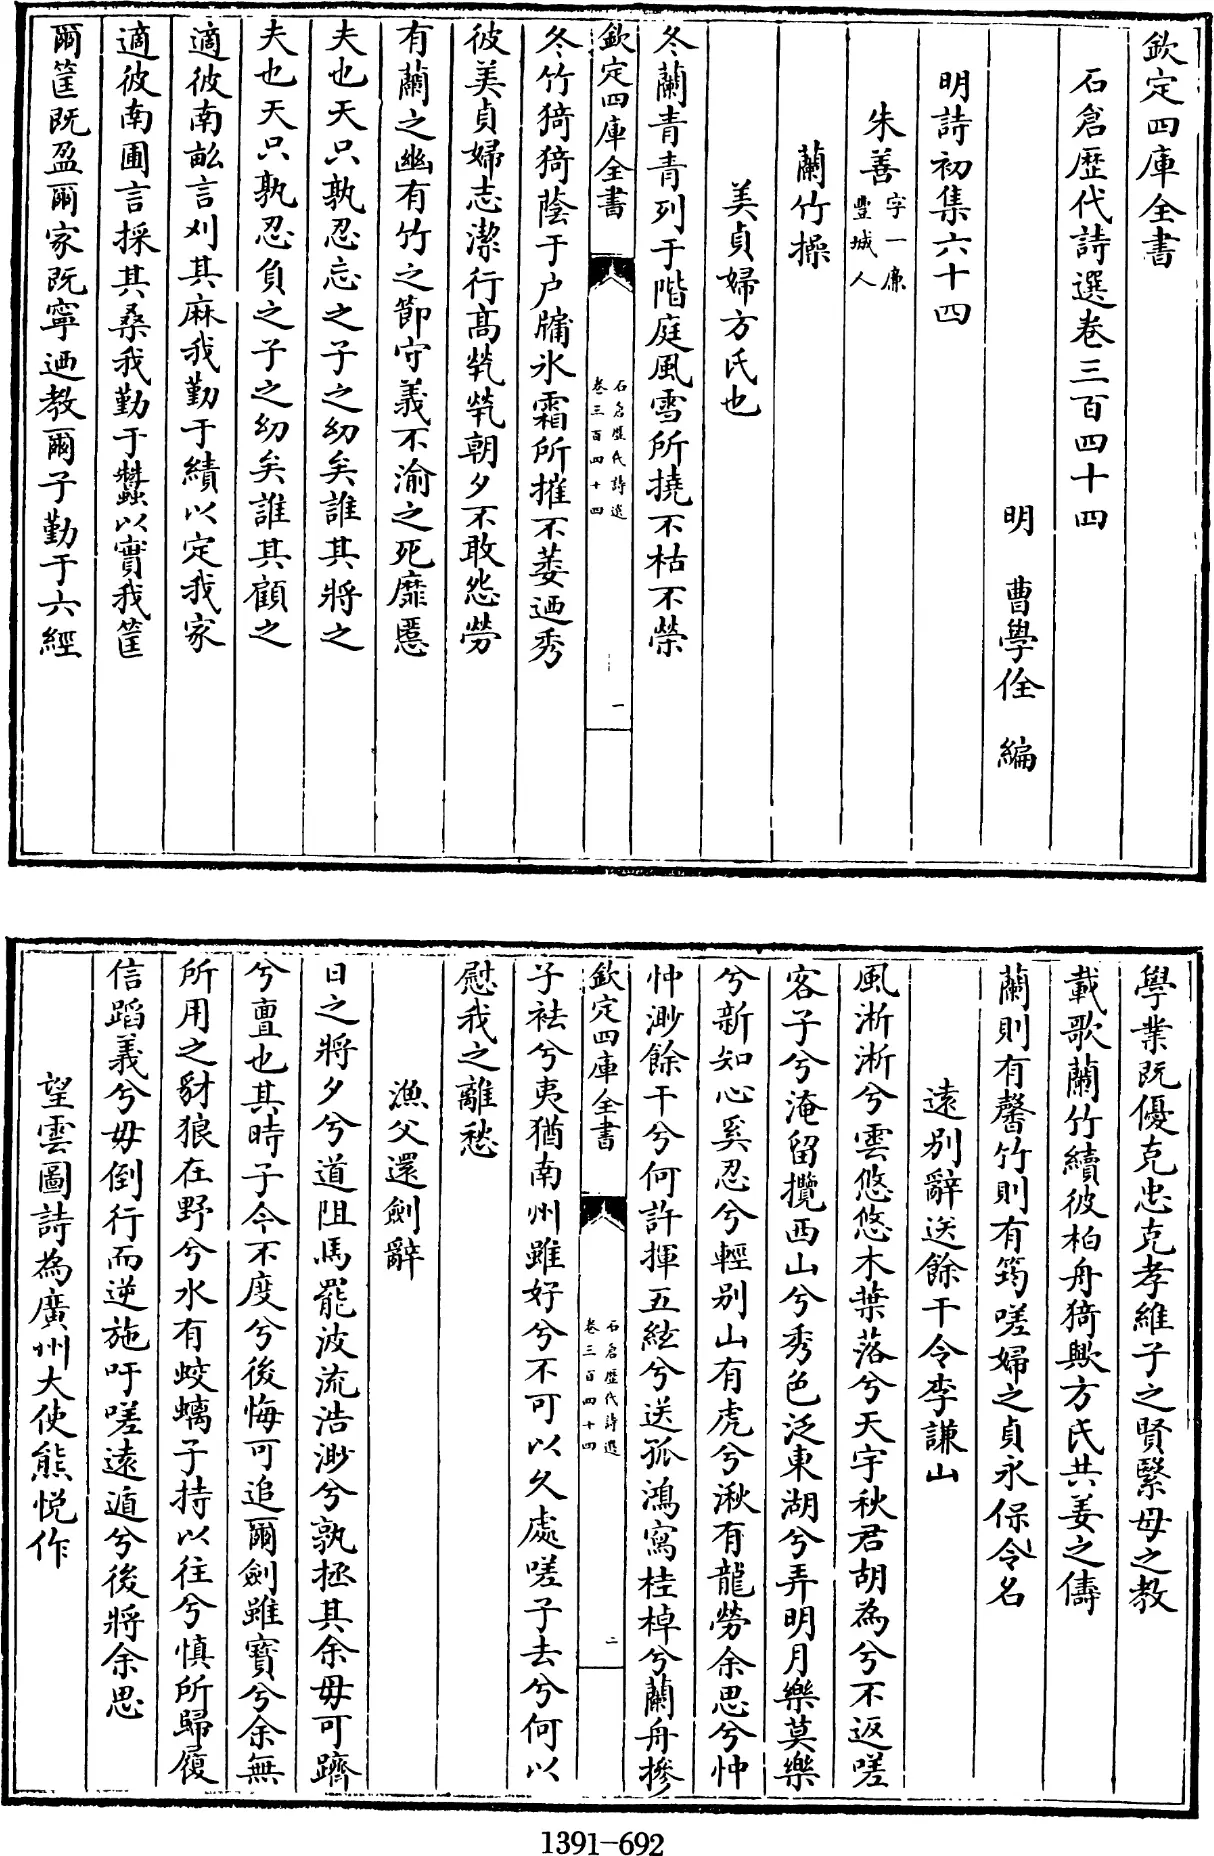 欽定四庫全書
石倉歷代詩選卷三百四十四
明 曹學佺 編
明詩初集六十四
朱善 字一廉 豐城人
蘭竹操
美貞婦方氏也
冬蘭青青列于階庭風雪所撓不枯不榮
欽定四庫全書 石倉歷代詩選 卷三百四十四 一
冬竹猗猗蔭于户牖氷霜所摧不萎迺秀
彼美貞婦志潔行髙煢煢朝夕不敢怨勞
有蘭之幽有竹之節守義不渝之死靡慝
夫也天只孰忍忘之子之幼矣誰其將之
夫也天只孰忍負之子之幼矣誰其顧之
適彼南畝言刈其麻我勤于績以定我家
適彼南圃言採其桑我勤于蠶以實我筐
爾筐既盈爾家既寧迺教爾子勤于六經
學業既優克忠克孝維子之賢緊母之教
載歌蘭竹續彼柏舟猗歟方氏共姜之儔
蘭則有馨竹則有筠嗟婦之貞永保令名
遠别辭送餘干令李謙山
風淅淅兮雲悠悠木葉落兮天宇秋君胡為兮不返嗟
客子兮淹留攬西山兮秀色泛東湖兮弄明月樂莫樂
兮新知心奚忍兮輕别山有虎兮湫有龍勞余思兮忡
忡渺餘干兮何許揮五絃兮送孤鴻寫桂棹兮蘭舟摻
欽定四庫全書 石倉歷代詩選 卷三百四十四 二
子袪兮夷猶南州雖好兮不可以久處嗟子去兮何以
慰我之離愁
漁父還劍辭
日之將夕兮道阻馬罷波流浩渺兮孰拯其余毋可躋
兮亶也其時子今不度兮後悔可追爾劍雖寳兮余無
所用之豺狼在野兮水有蛟螭子持以往兮慎所歸履
信蹈義兮毋倒行而逆施吁嗟遠遁兮後將余思
望雲圖詩為廣州大使熊悦作
1391-692